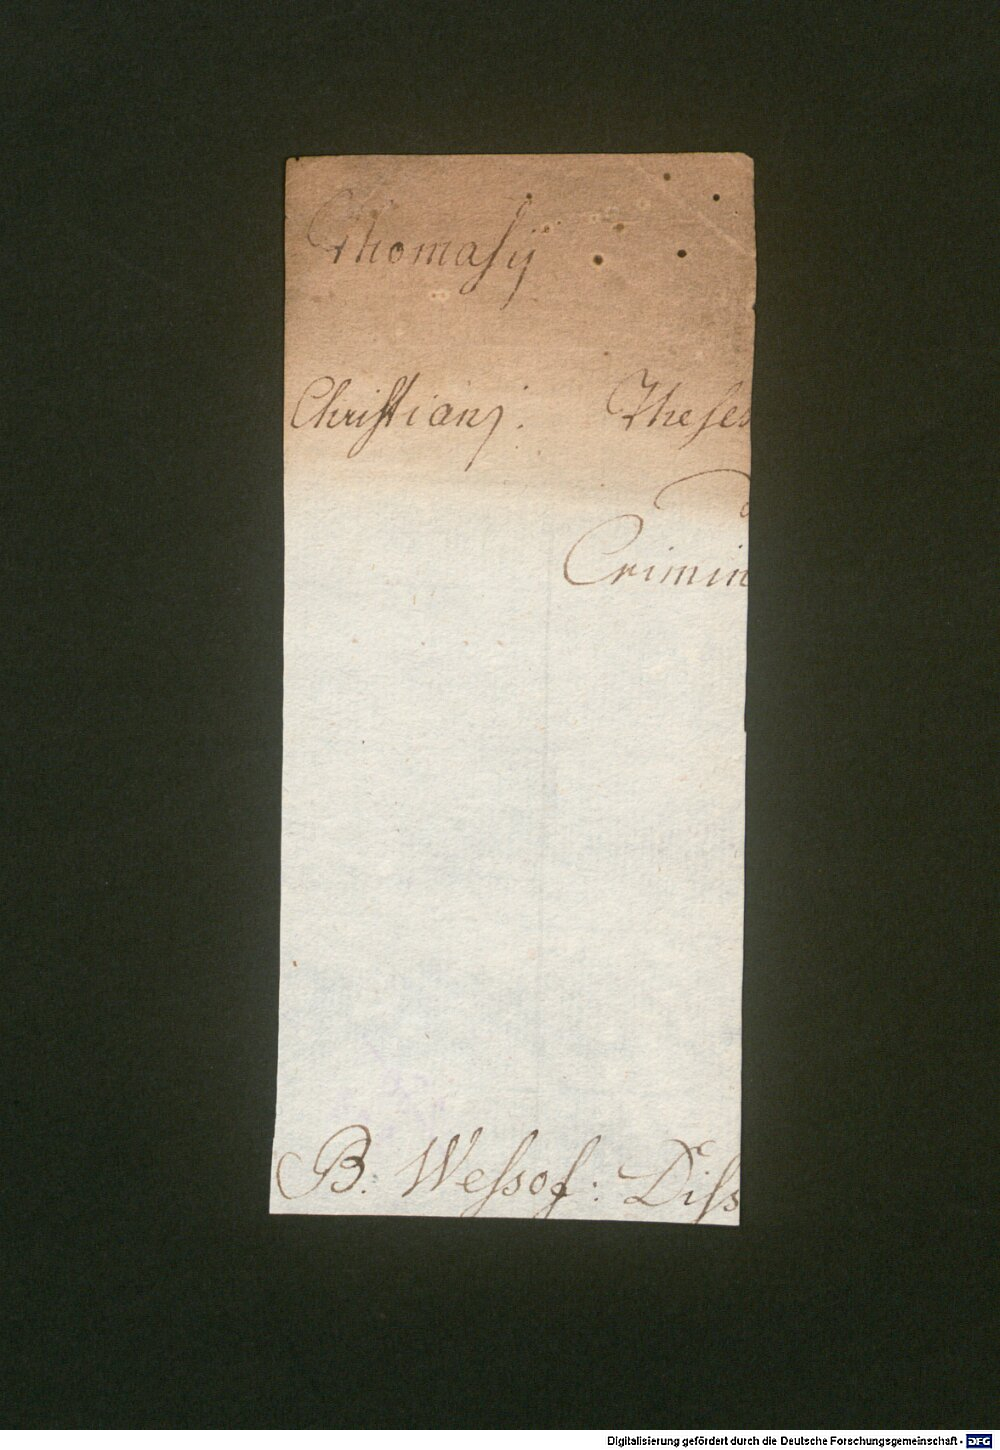 Thomasij
Christianj. Theses
d
Crimin
B. Wessof: Diss
Digitalisierung gefördert durch die Deutsche Forschungsgemeinschaft - DFG